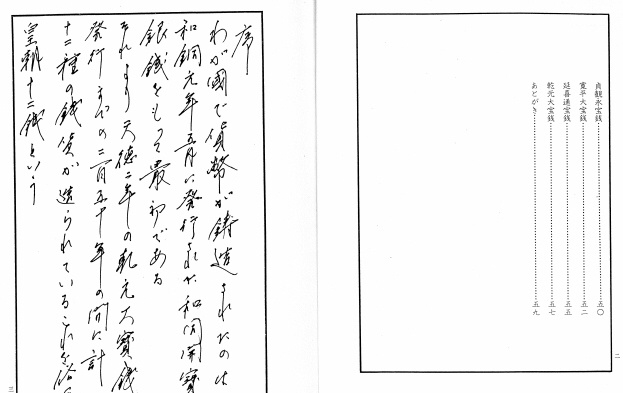 貞観永宝銭 五〇
寛平大宝銭 五二
延喜通宝銭 五五
乾元大宝銭 五七
あとがき 五九
二
序
わが國で貨幣が鋳造されたのは
和銅元年五月に発行された和同開寶
銀銭をもって最初である
それより天徳二年の乾元大寶銭
発行までの二百五十年の間に計
十二種の銭貨が造られているこれを俗に
皇朝十二銭という
三